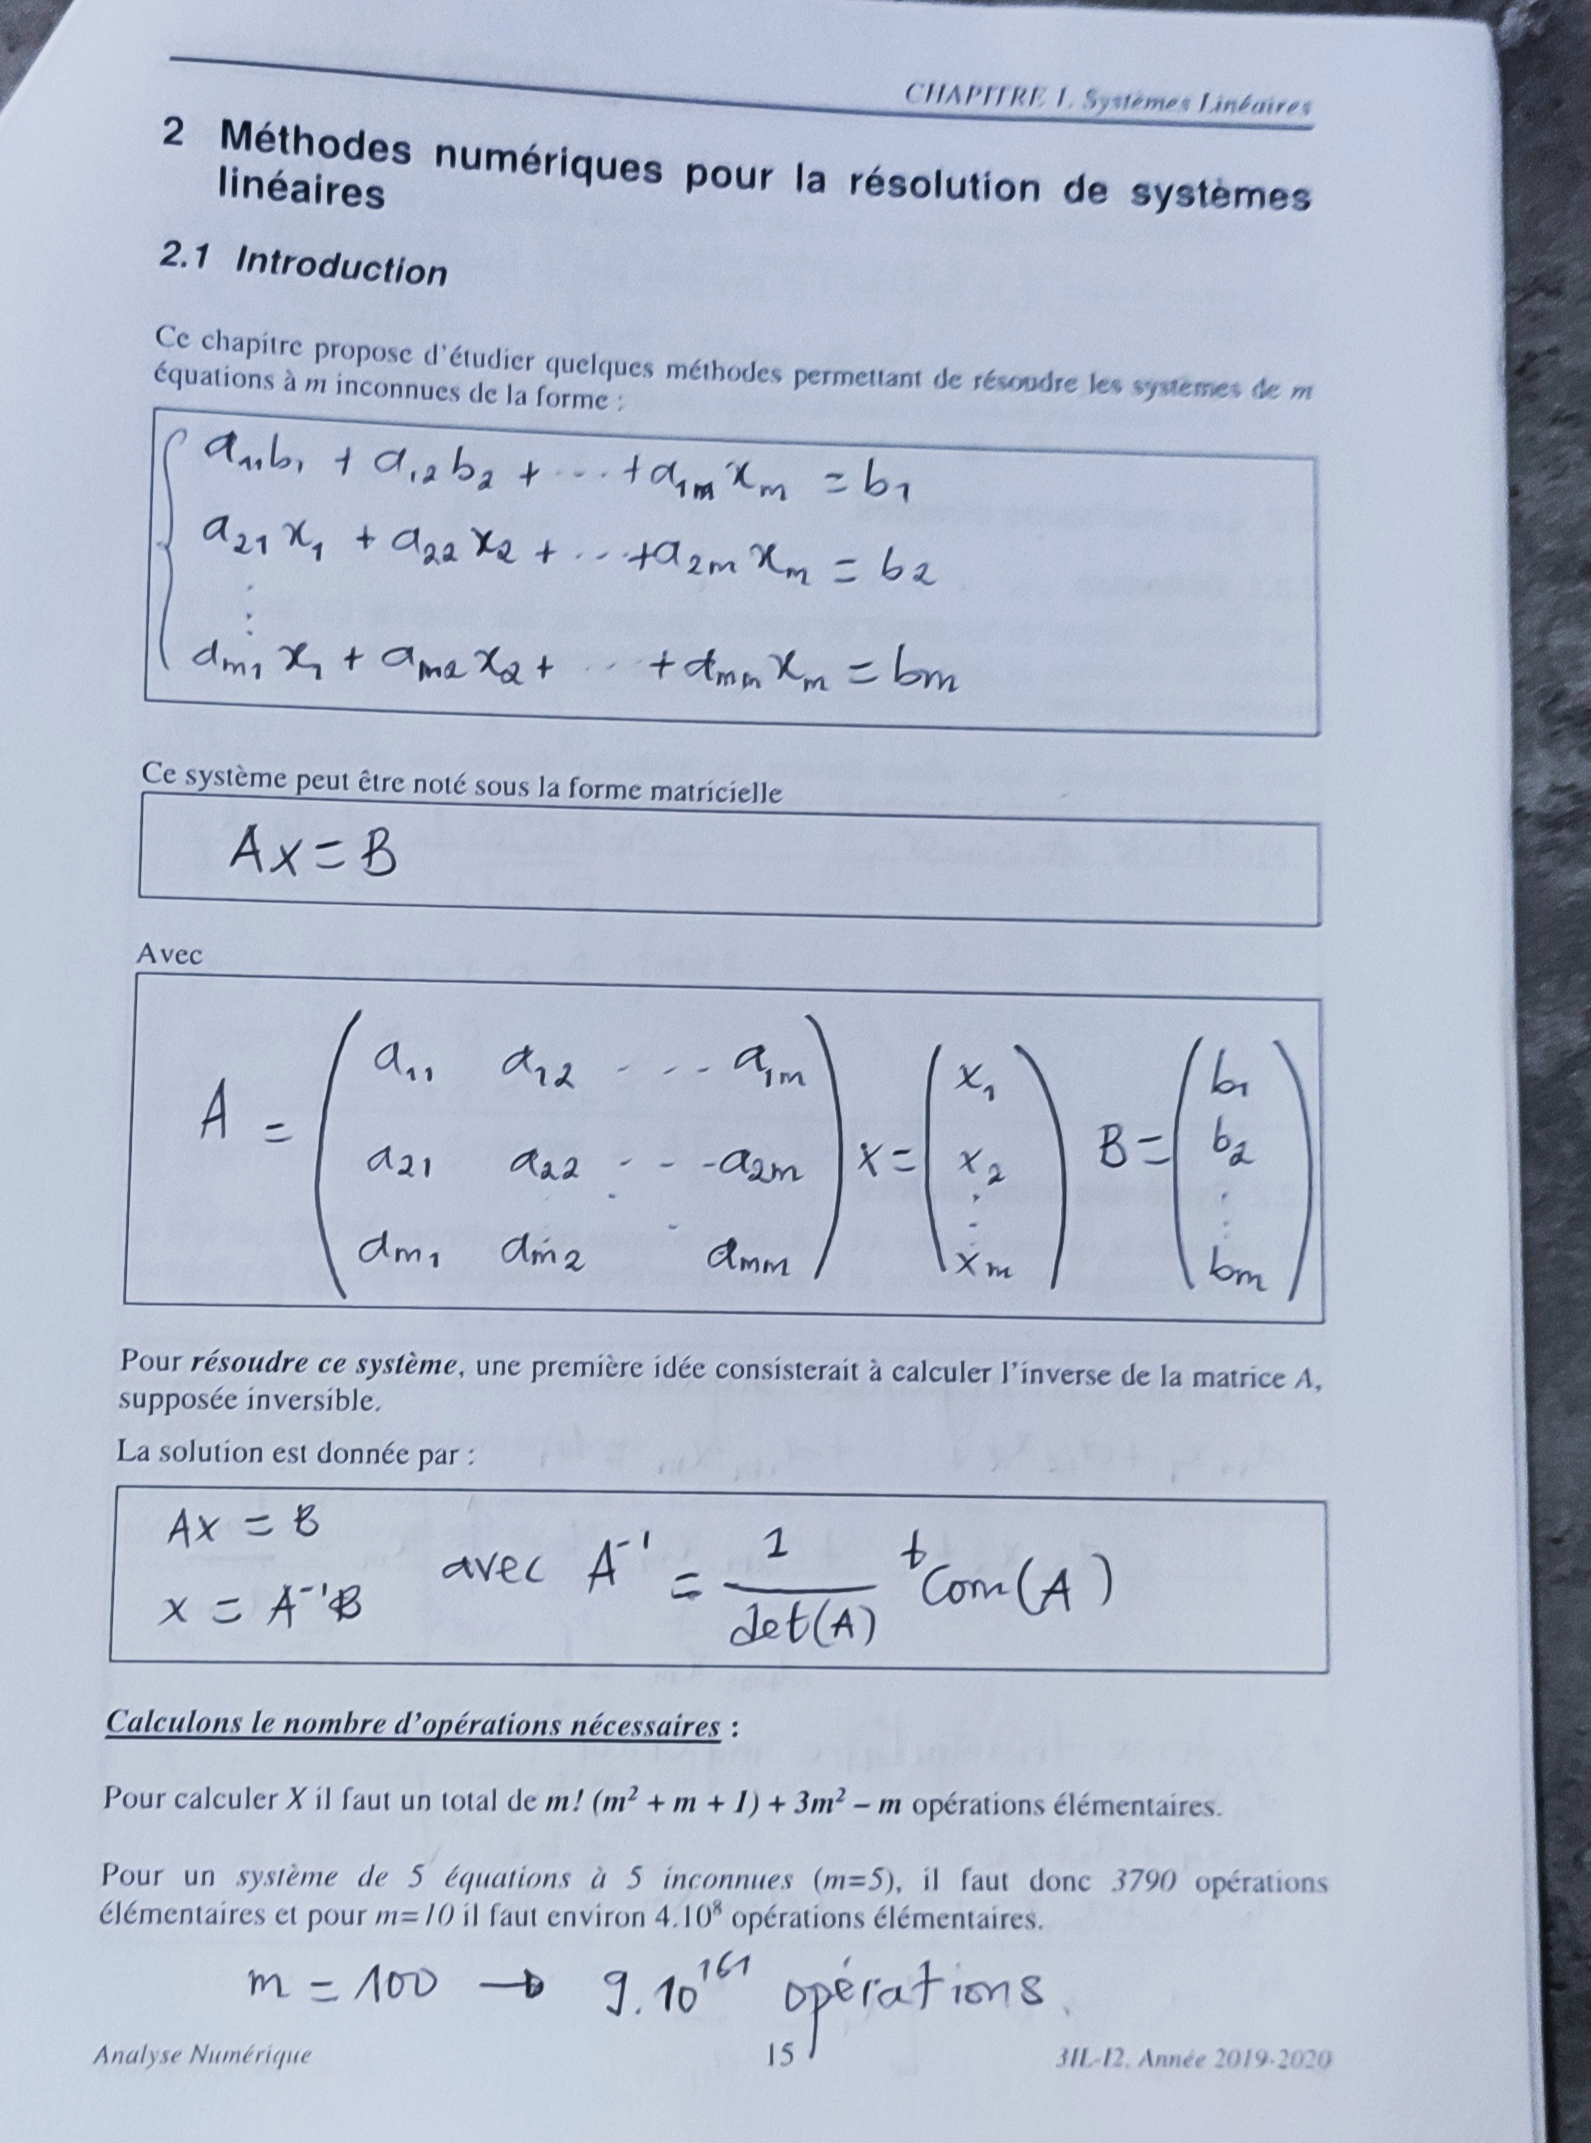 CHAPITRE 1. Systèmes Linéaires
2 Méthodes numériques pour la résolution de systèmes
linéaires
2.1 Introduction
Ce chapitre propose d'étudier quelques méthodes permettant de résoudre les systèmes de m
équations à m inconnues de la forme :
a₁₁b₁ + a₁₂b₂ + ... + a₁ₘxₘ = b₁
a₂₁x₁ + a₂₂x₂ + ... + a₂ₘxₘ = b₂
⋮
aₘ₁x₁ + aₘ₂x₂ + ... + aₘₘxₘ = bₘ
Ce système peut être noté sous la forme matricielle
AX = B
Avec
A = ( a₁₁ a₁₂ ... a₁ₘ ) X = ( x₁ ) B = ( b₁ )
a₂₁ a₂₂ ... a₂ₘ x₂ b₂
⋮ ⋮
aₘ₁ aₘ₂ aₘₘ xₘ bₘ
Pour résoudre ce système, une première idée consisterait à calculer l'inverse de la matrice A,
supposée inversible.
La solution est donnée par :
AX = B
X = A⁻¹B avec A⁻¹ = 1/det(A) ᵗCom(A)
Calculons le nombre d'opérations nécessaires :
Pour calculer X il faut un total de m! (m² + m + 1) + 3m² – m opérations élémentaires.
Pour un système de 5 équations à 5 inconnues (m=5), il faut donc 3790 opérations
élémentaires et pour m=10 il faut environ 4.10⁸ opérations élémentaires.
m = 100 → 9.10¹⁶¹ opérations.
Analyse Numérique 15 3IL-I2, Année 2019-2020